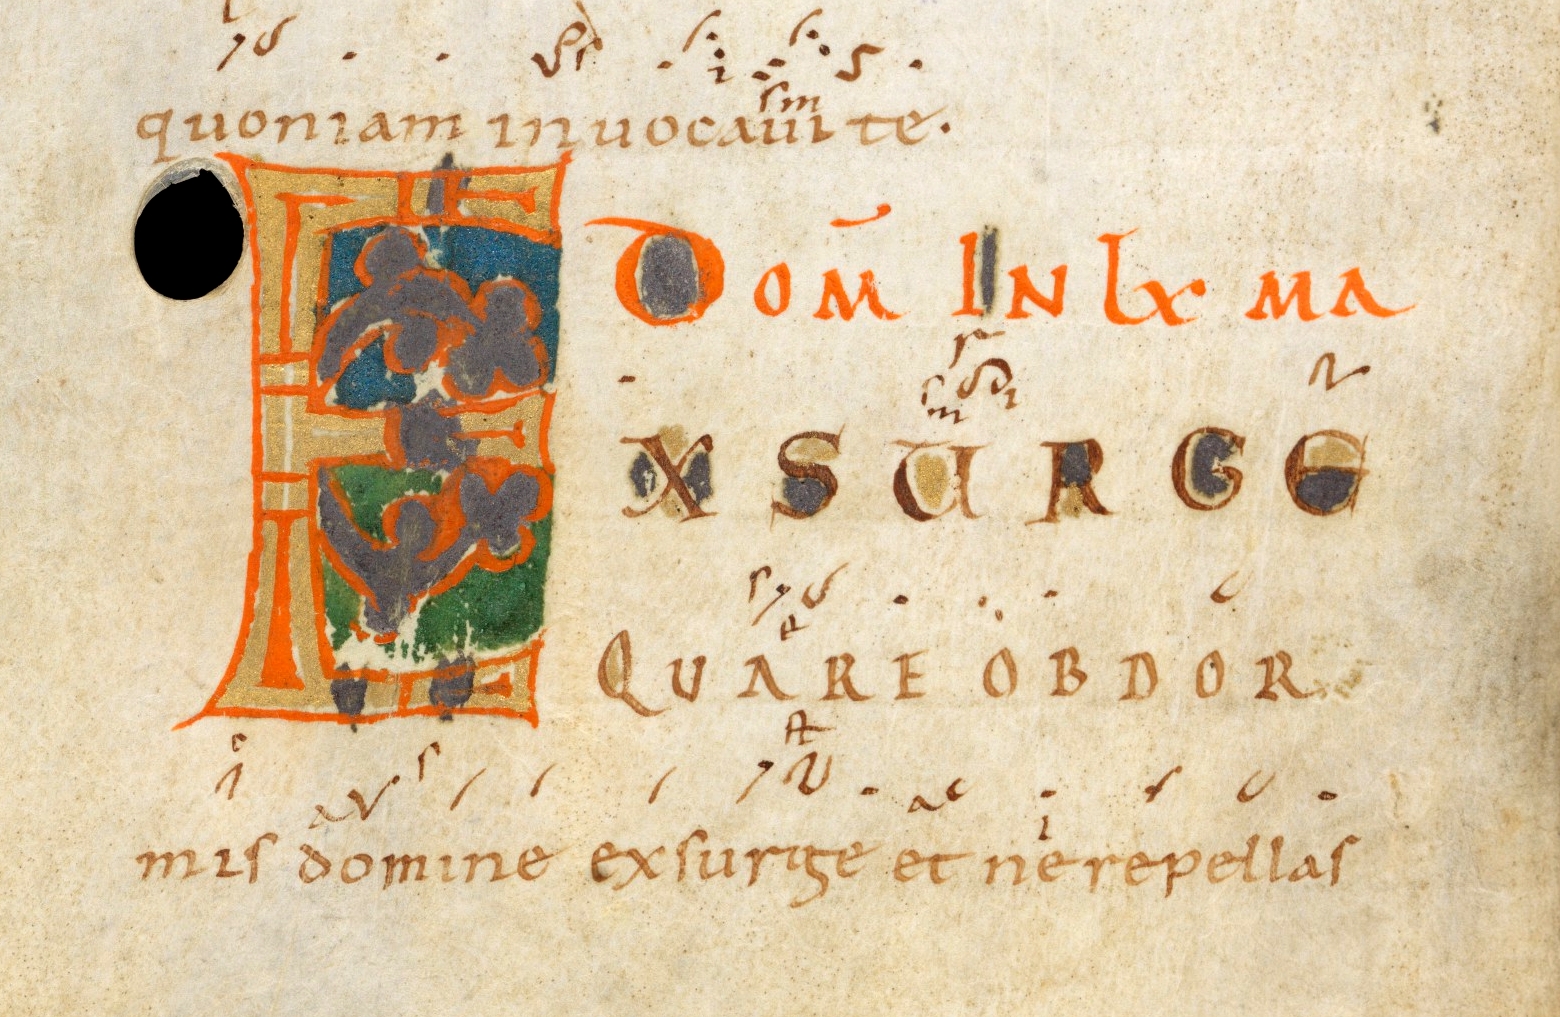 quoniam inuocaui te.
DOM̄ IN LX MA
EXSURGE
QUARE OBDOR
mis domine exsurge et ne repellas